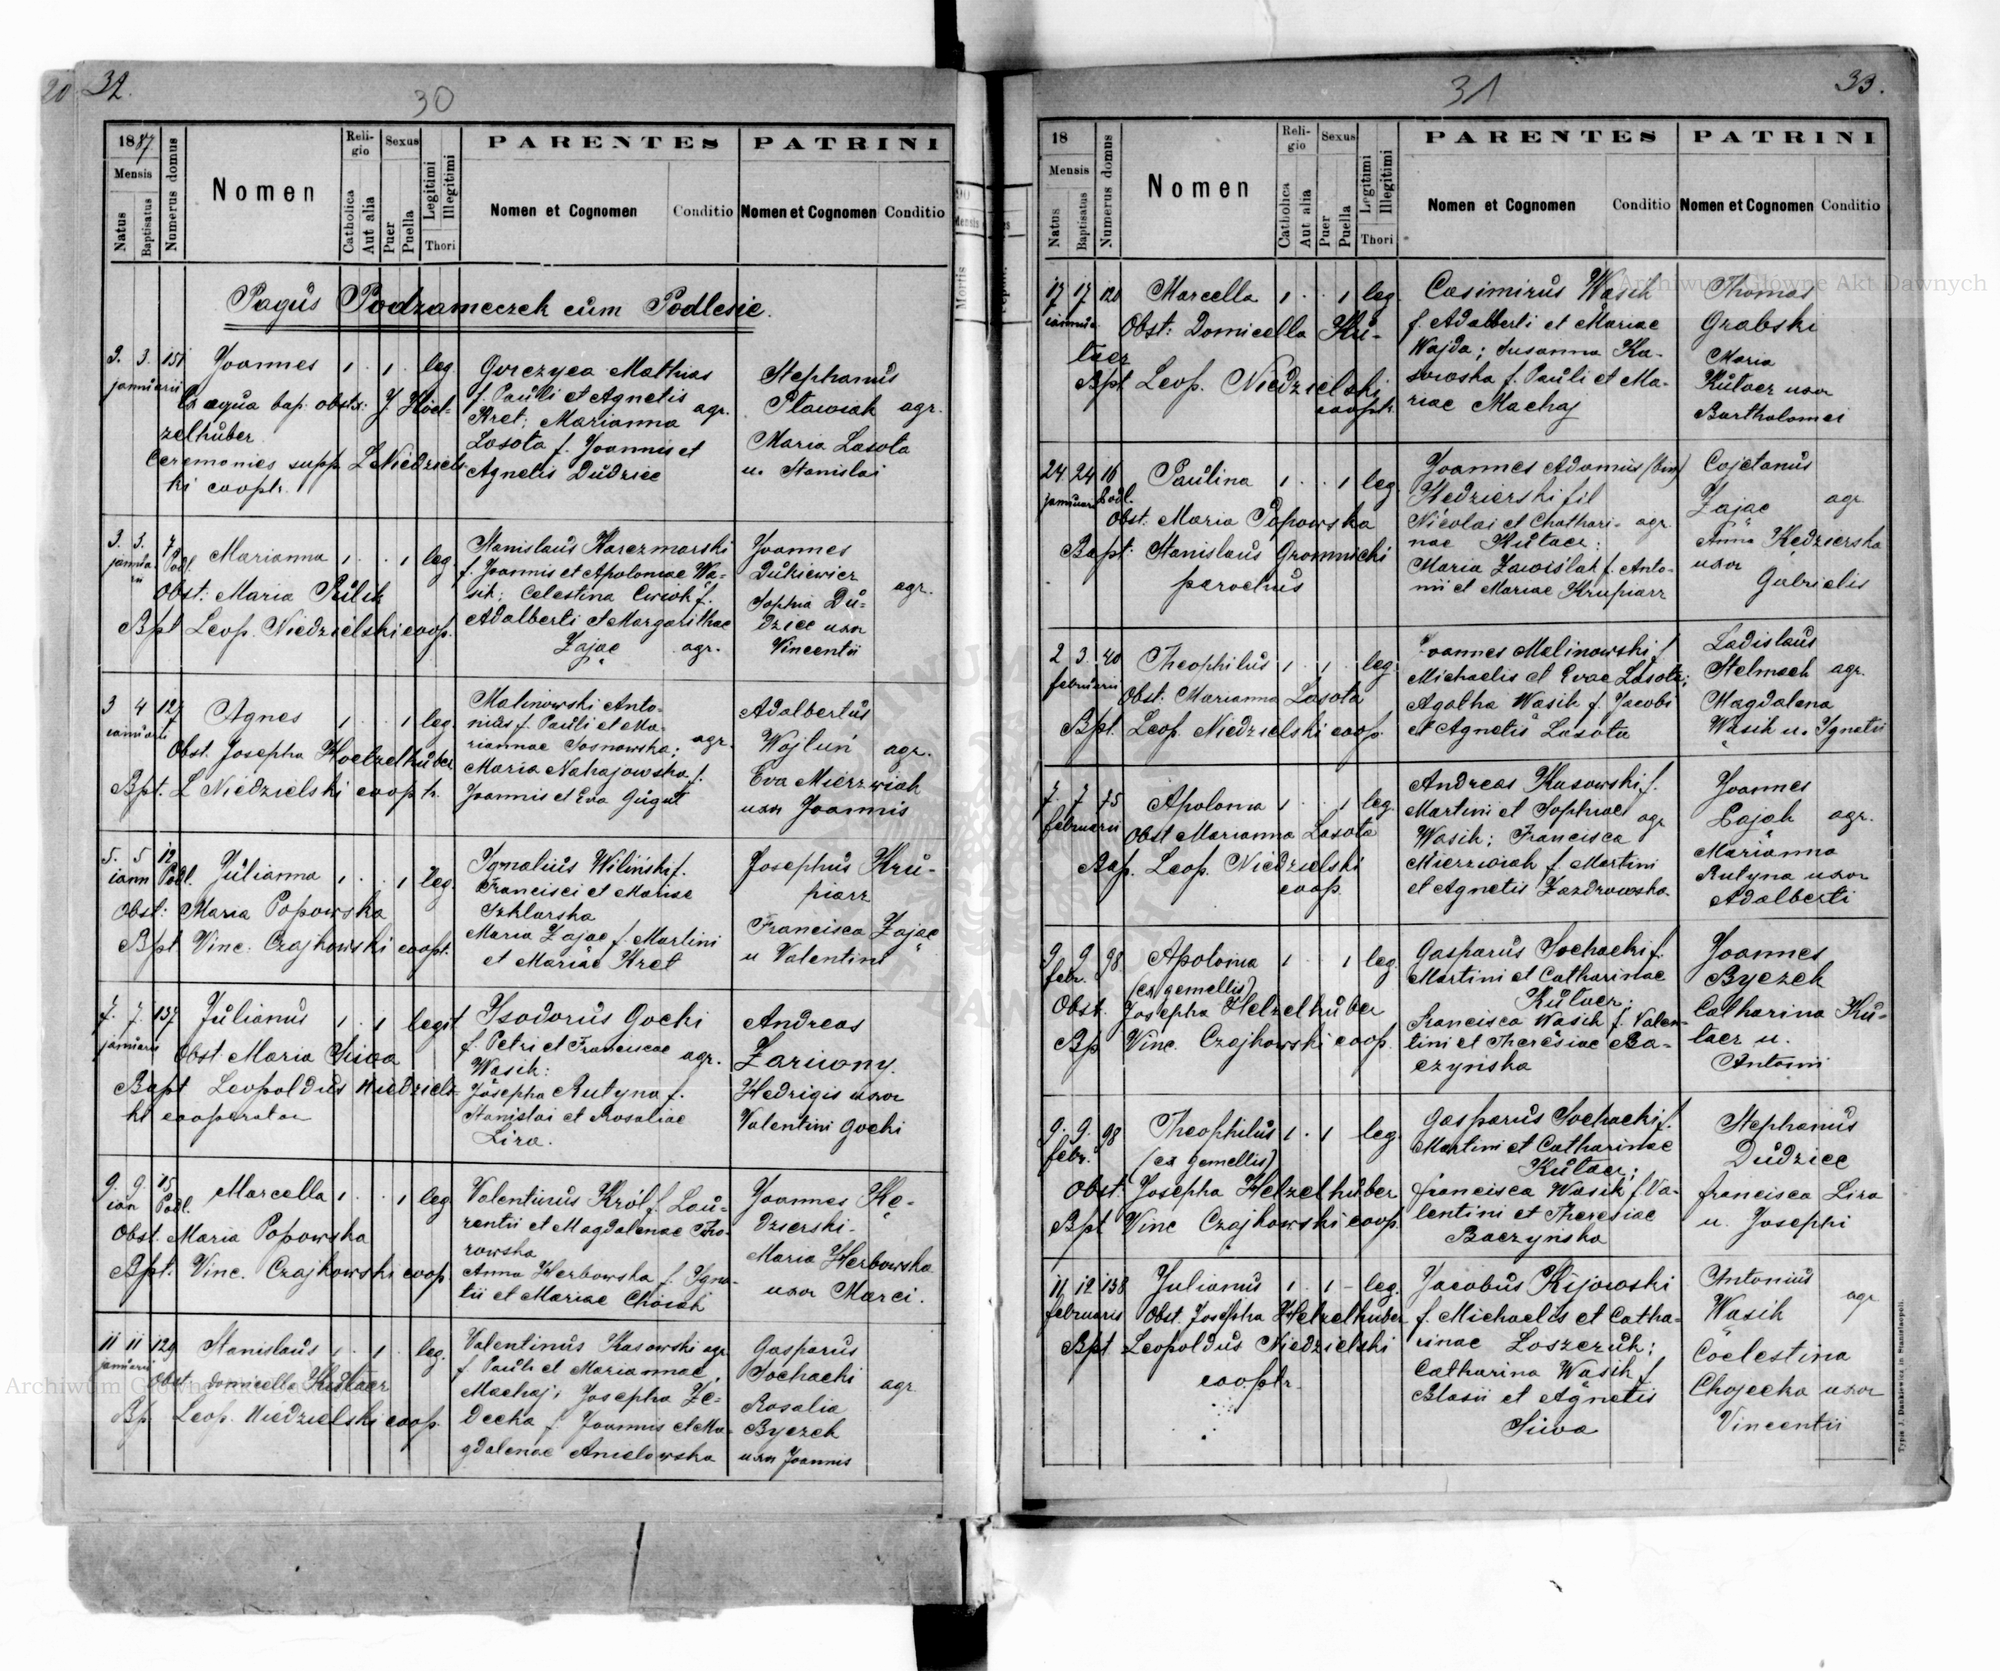 20 32.
30
1887
Mensis
Natus
Baptisatus
Numerus domus
Nomen
Religio
Catholica
Aut alia
Sexus
Puer
Puella
Legitimi
Illegitimi
Thori
PARENTES
Nomen et Cognomen
Conditio
PATRINI
Nomen et Cognomen
Conditio
Pagus Podzameczek cum Podlesie.
2. 3. 151 Joannes 1 . 1 . leg.
januarii
Ex aqua bap. obsts: J. Hoel-
zelhuber
Ceremonies supp. L Niedziels
ki cooptr.
Gorczyca Mathias
f. Pauli et Agnetis
Kret; Marianna agr.
Lasota f. Joannis et
Agnetis Dudziec
Stephanus
Pławiak agr.
Maria Lasota
u. Stanislai
3. 3. 7 Marianna 1 . . 1 leg
janua
rii
Podl.
Obst: Maria Rulik
Bpt Leop. Niedzielski coop.
Stanislaus Karczmarski
f. Joannis et Apoloniae Wą-
sik; Celestina Cwiok f.
Adalberti et Margarithae
Zając agr.
Joannes
Dukiewicz agr.
Sophia Du-
dziec uxor
Vincentii
3 4 127 Agnes 1 . . 1 leg.
januarii
Obst. Josepha Hoelzelhuber
Bpt. L Niedzielski cooptr.
Malinowski Anto-
nius f. Pauli et Ma-
riannae Sosnowska; agr.
Maria Nahajowska f.
Joannis et Eva Gugut
Adalbertus
Wojtuń agr.
Eva Mierzwiak
uxor Joannis
5. 5 12 Julianna 1 . . 1 leg.
iann Podl.
Obst: Maria Popowska
Bpt Vinc. Czajkowski coopt.
Ignatius Wiliński f.
Francisci et Mariae
Szklarska
Maria Zając f. Martini
et Mariae Kret
Josephus Kru-
piarz
Francisca Zając
u Valentini
7. 7. 137 Julianus 1 . 1 legit
januarii
Obst Maria Siwa
Bapt Leopoldus Niedziels-
ki cooperator
Isodorus Gocki
f. Petri et Franciscae agr.
Wąsik:
Josepha Rutyna f.
Stanislai et Rosaliae
Lira.
Andreas
Zariczny.
Hedrigis uxor
Valentini Gocki
9. 9. 15 Marcella 1 . . 1 leg.
ian Podl.
Obst. Maria Popowska
Bpt. Vinc. Czajkowski coop.
Valentinus Król f. Lau-
rentii et Magdalenae Tho-
rowska
Anna Herbowska f. Igna-
tii et Mariae Choiak
Joannes Kę-
dzierski.
Maria Herbowska
uxor Marci.
11 11 129 Stanislaus 1 . 1 . leg.
januarii
Obst Domicella Kutacz
Bp. Leop. Niedzielski coop.
Valentinus Kasowski agr
f. Pauli et Mariannae
Machaj; Josepha Ze-
decka f. Joannis et Ma-
gdalenae Anielowska
Gasparus
Sochacki agr
Rosalia
Byczek
uxor Joannis
Archiwum Główne Akt Dawnych
31
33.
18
Mensis
Natus
Baptisatus
Numerus domus
Nomen
Religio
Catholica
Aut alia
Sexus
Puer
Puella
Legitimi
Illegitimi
Thori
PARENTES
Nomen et Cognomen
Conditio
PATRINI
Nomen et Cognomen
Conditio
Archiwum Główne Akt Dawnych
17 17 120 Marcella 1 . . 1 leg.
Obst: Domicella Ku-
tacz
Bpt Leop. Niedzielski
cooptr.
Casimirus Wąsik
f. Adalberti et Mariae
Wajda; Susanna Ka-
sowska f. Pauli et Ma-
riae Machaj
Thomas
Grabski
Maria
Kutacz uxor
Bartholomei
24 24 16 Paulina 1 . . 1 leg
januarii Podl.
Obst. Maria Popowska
Bapt: Stanislaus Gromnicki
parochus
Joannes Adamus (bin)
Kedzierski fil
Nicolai et Chathari- agr
nae Kutacz;
Maria Zawiślak f. Anto-
nii et Mariae Krupiarz
Cajetanus
Zając agr
Anna Kędzierska
uxor
Gabrielis
2 3. 40 Theophilus 1 . 1 . leg.
februarii
Obst: Marianna Lasota
Bpt. Leop. Niedzielski coop.
Joannes Malinowski f.
Michaelis et Evae Lasota;
Agatha Wąsik f. Jacobi
et Agnetis Lasota
Ladislaus
Stelmach agr.
Magdalena
Wąsik u. Ignatii
7. 7 75 Apolonia 1 . . 1 leg.
februarii
Obst Marianna Lasota
Bap. Leop. Niedzielski
coop.
Andreas Kasowski f.
Martini et Sophiae agr
Wasik; Francisca
Mierzwiak f. Martini
et Agnetis Zazdrowska
Joannes
Pająk agr.
Marianna
Rutyna uxor
Adalberti
9 9 98. Apolonia 1 1 leg
febr. (ex gemellis)
Obst. Josepha Helzelhuber
Bp Vinc. Czajkowski coop.
Gasparus Sochacki f.
Martini et Catharinae
Kutacz;
Francisca Wasik f. Valen-
tini et Theresiae Ba-
czynska
Joannes
Byczek
Catharina Ku-
tacz u.
Antonii
9. 9. 98 Theophilus 1 . 1 leg.
febr. (ex gemellis)
Obst. Josepha Helzelhuber
Bpt Vinc Czajkowski coop.
Gasparus Sochacki f.
Martini et Catharinae
Kutacz;
francisca Wasik f. Va-
lentini et Theresiae
Baczynska
Stephanus
Dudziec
francisca Lira
u. Josephi
11 12 138 Julianus 1 . 1 - leg.
februariis Obst. Josepha Helzelhuber
Bpt Leopoldus Niedzielski
cooptr.
Jacobus Kijowski
f. Michaelis et Catha-
rinae Loszczuk;
Catharina Wąsik f
Blasii et Agnetis
Siwa
Antonius
Wąsik agr
Coelestina
Chojecka uxor
Vincentii
Typis J. Dankiewicz in Stanislaopoli.